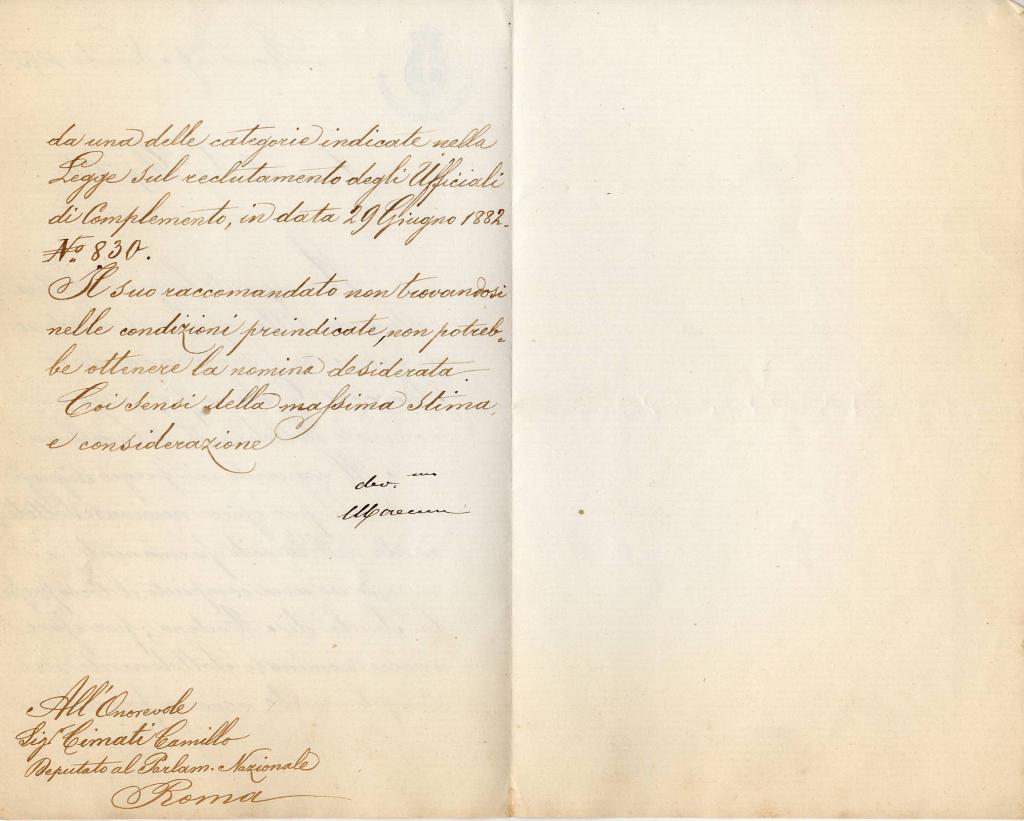 da una delle categorie indicate nella
Legge sul reclutamento degli Ufficiali
di Complemento, in data 29 Giugno 1882.
N.º 830.
Il suo raccomandato non trovandosi
nelle condizioni preindicate, non potreb-
be ottenere la nomina desiderata.
Coi sensi della massima stima,
e considerazione
dev.mo
All'Onorevole
Sig.r Cimati Camillo
Deputato al Parlam. Nazionale
Roma